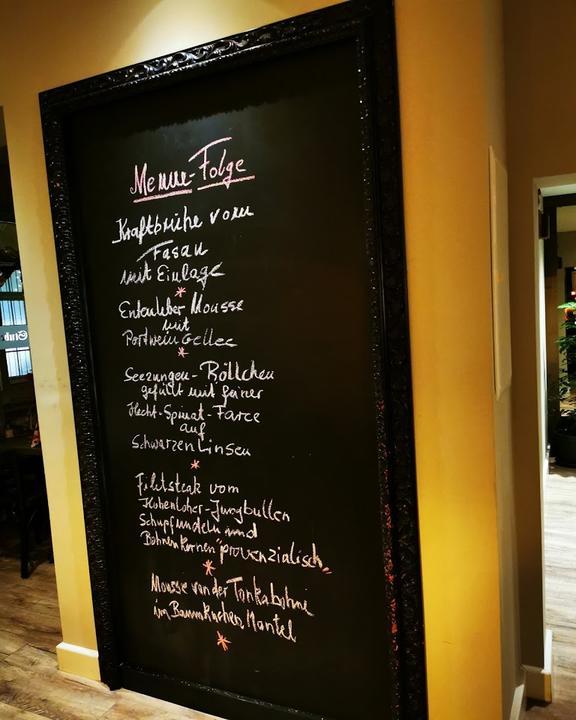 Menue-Folge
Kraftbrühe vom
Fasan
mit Einlage
*
Entenleber Mousse
mit
Portwein Gellee
*
Seezungen-Röllchen
gefüllt mit feiner
Hecht-Spinat-Farce
auf
Schwarzen Linsen
*
Filetsteak vom
Hohenloher-Jungbullen
Schupfnudeln und
Bohnenkernen "provenzialisch"
*
Mousse von der Tonkabohne
im Baumkuchen Mantel
*